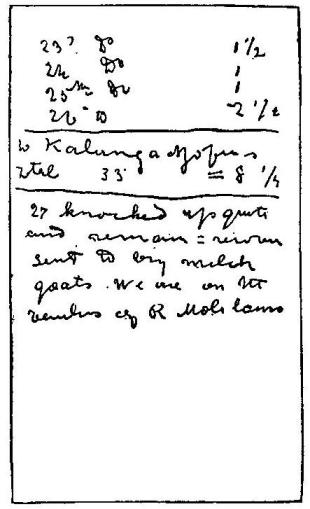 23ʳ Do 1 1/2
24 Do 1
25th Do 1
26 Do 2 1/2
to Kalunganjofus
total 33 = 8 1/4
27 knocked up quite
and remain = recover
sent to buy milch
goats. We are on the
banks of R Molilamo